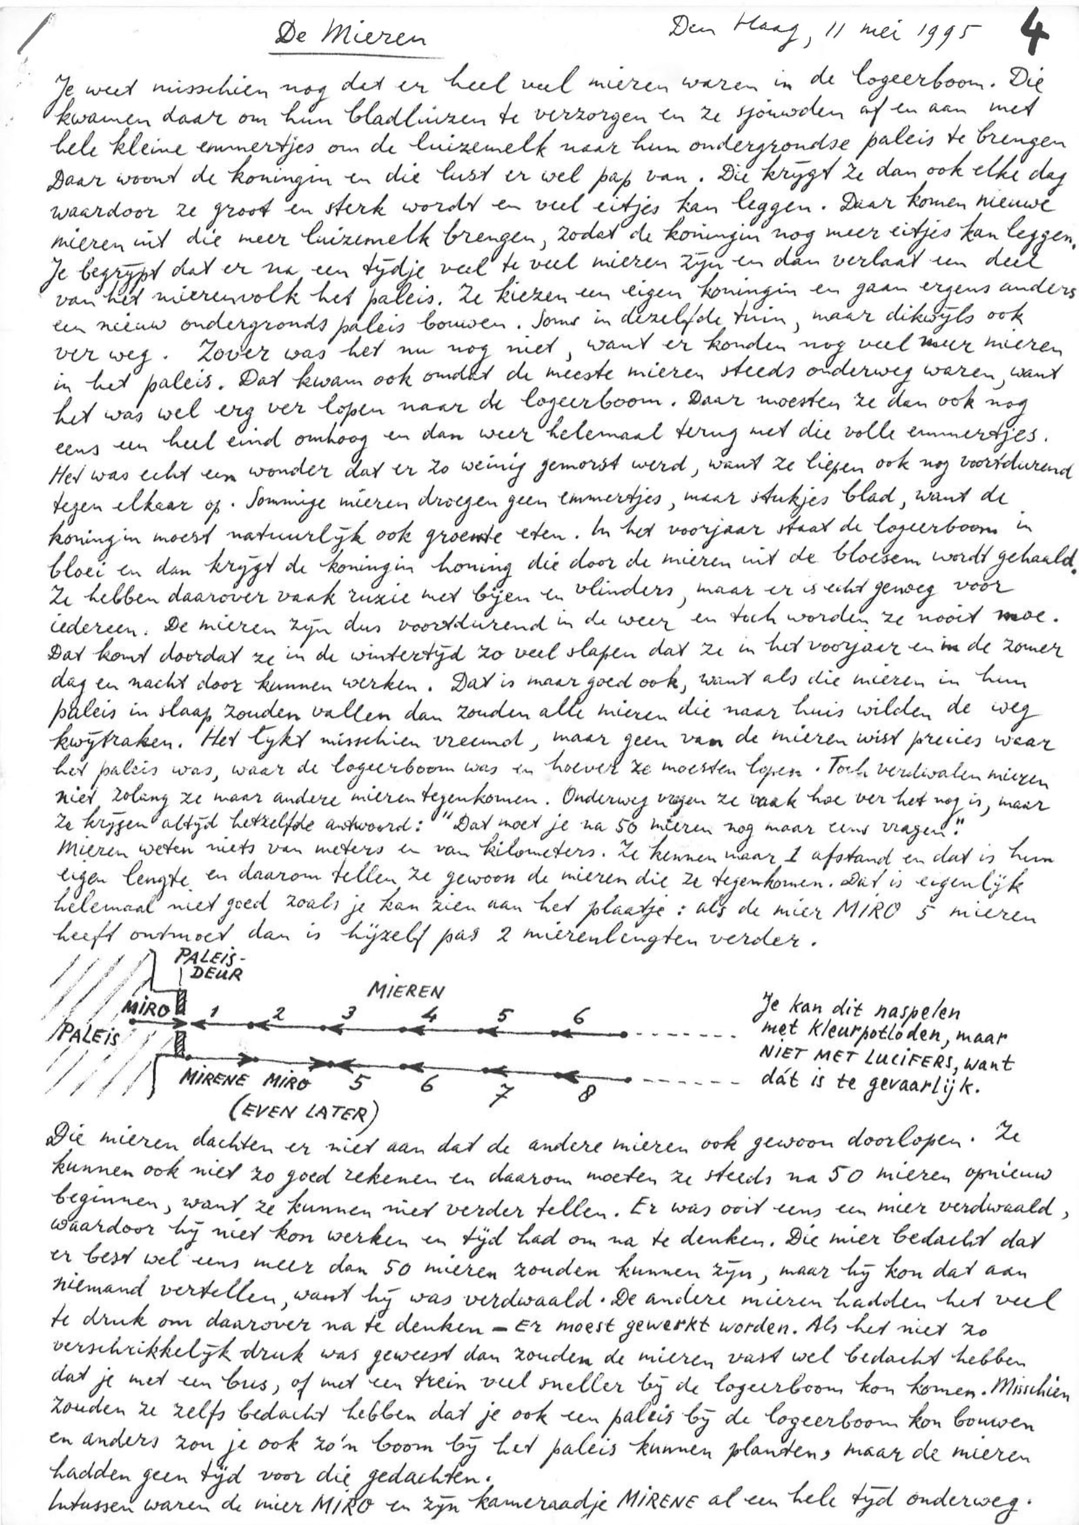 De Mieren
Den Haag, 11 mei 1995
4
Je weet misschien nog dat er heel veel mieren waren in de logeerboom. Die
kwamen daar om hun bladluizen te verzorgen en ze sjouwden af en aan met
hele kleine emmertjes om de luizemelk naar hun ondergrondse paleis te brengen
Daar woont de koningin en die lust er wel pap van. Die krijgt ze dan ook elke dag
waardoor ze groot en sterk wordt en veel eitjes kan leggen. Daar komen nieuwe
mieren uit die meer luizemelk brengen, zodat de koningin nog meer eitjes kan leggen.
Je begrijpt dat er na een tijdje veel te veel mieren zijn en dan verlaat een deel
van het mierenvolk het paleis. Ze kiezen een eigen koningin en gaan ergens anders
een nieuw ondergronds paleis bouwen. Soms in dezelfde tuin, maar dikwijls ook
ver weg. Zover was het nu nog niet, want er konden nog veel meer mieren
in het paleis. Dat kwam ook omdat de meeste mieren steeds onderweg waren, want
het was wel erg ver lopen naar de logeerboom. Daar moesten ze dan ook nog
eens een heel eind omhoog en dan weer helemaal terug met die volle emmertjes.
Het was echt een wonder dat er zo weinig gemorst werd, want ze liepen ook nog voortdurend
tegen elkaar op. Sommige mieren droegen geen emmertjes, maar stukjes blad, want de
koningin moest natuurlijk ook groente eten. In het voorjaar staat de logeerboom in
bloei en dan krijgt de koningin honing die door de mieren uit de bloesem wordt gehaald.
Ze hebben daarover vaak ruzie met bijen en vlinders, maar er is echt genoeg voor
iedereen. De mieren zijn dus voortdurend in de weer en toch worden ze nooit moe.
Dat komt doordat ze in de wintertijd zo veel slapen dat ze in het voorjaar en in de zomer
dag en nacht door kunnen werken. Dat is maar goed ook, want als die mieren in hun
paleis in slaap zouden vallen dan zouden alle mieren die naar huis wilden de weg
kwijtraken. Het lijkt misschien vreemd, maar geen van de mieren wist precies waar
het paleis was, waar de logeerboom was en hoever ze moesten lopen. Toch verdwalen mieren
niet zolang ze maar andere mieren tegenkomen. Onderweg vragen ze vaak hoe ver het nog is, maar
ze krijgen altijd hetzelfde antwoord: "Dat moet je na 50 mieren nog maar eens vragen."
Mieren weten niets van meters en van kilometers. Ze kennen maar 1 afstand en dat is hun
eigen lengte en daarom tellen ze gewoon de mieren die ze tegenkomen. Dat is eigenlijk
helemaal niet goed zoals je kan zien aan het plaatje: als de mier MIRO 5 mieren
heeft ontmoet dan is hijzelf pas 2 mierenlengten verder.
PALEIS-
DEUR
MIEREN
MIRO 1 2 3 4 5 6
PALEIS
MIRENE MIRO 5 6 7 8
(EVEN LATER)
Je kan dit naspelen
met kleurpotloden, maar
NIET MET LUCIFERS, want
dát is te gevaarlijk.
Die mieren dachten er niet aan dat de andere mieren ook gewoon doorlopen. Ze
kunnen ook niet zo goed rekenen en daarom moeten ze steeds na 50 mieren opnieuw
beginnen, want ze kunnen niet verder tellen. Er was ooit eens een mier verdwaald,
waardoor hij niet kon werken en tijd had om na te denken. Die mier bedacht dat
er best wel eens meer dan 50 mieren zouden kunnen zijn, maar hij kon dat aan
niemand vertellen, want hij was verdwaald. De andere mieren hadden het veel
te druk om daarover na te denken – Er moest gewerkt worden. Als het niet zo
verschrikkelijk druk was geweest dan zouden de mieren vast wel bedacht hebben
dat je met een bus, of met een trein veel sneller bij de logeerboom kon komen. Misschien
zouden ze zelfs bedacht hebben dat je ook een paleis bij de logeerboom kon bouwen
en anders zou je ook zo'n boom bij het paleis kunnen planten, maar de mieren
hadden geen tijd voor die gedachten.
Intussen waren de mier MIRO en zijn kameraadje MIRENE al een hele tijd onderweg.